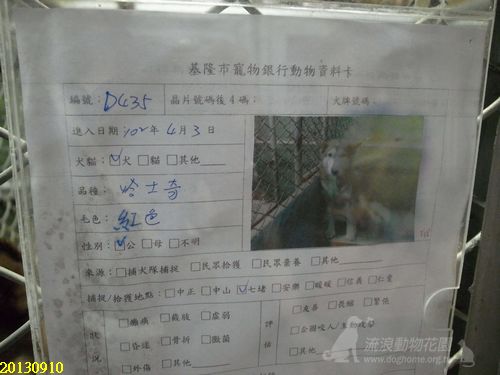 基隆市寵物銀行動物資料卡
編號：D435 晶片號碼後4碼： 犬牌號碼：
進入日期 102年4月3日
犬貓：☑犬 □貓 □其他
品種：哈士奇
毛色：紅色
性別：☑公 □母 □不明
來源：□捕犬隊捕捉 □民眾拾獲 □民眾棄養 □其他
捕捉/拾獲地點：□中正 □中山 ☑七堵 □安樂 □暖暖 □信義 □仁愛
狀況 □癱瘓 □截肢 □虛弱
□昏迷 □骨折 □皮膚
□外傷 □其他
評估 □友善 □長縮 □緊張
□企圖咬人/主動攻擊
□其他
流浪動物花園
www.doghome.org.tw
20130910